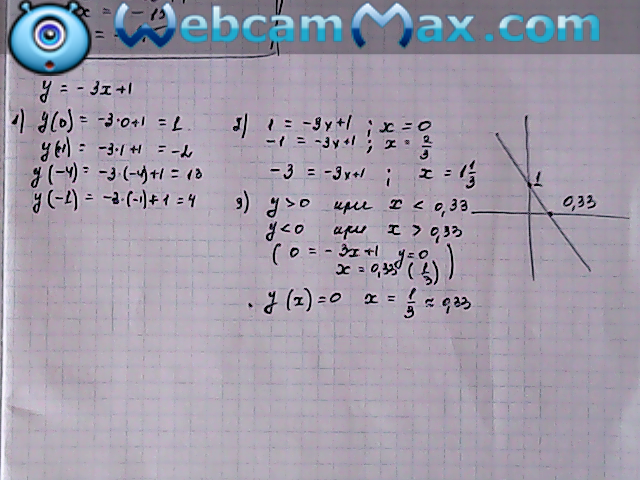 WebcamMax.com
x = - 13
=
y = - 3x+1
1) y(0) = -3·0+1 = 1
y(1) = -3·1+1 = -2
y(-4) = -3·(-4)+1 = 13
y(-1) = -3·(-1)+1 = 4
2) 1 = -3x+1 ; x = 0
-1 = -3x+1 ; x = 2/3
-3 = -3x+1 ; x = 1 1/3
3) y>0 при x < 0,33
y<0 при x > 0,33
( 0 = - 3x+1 y=0
x = 0,33 (1/3) )
y(x) = 0 x = 1/3 ≈ 0,33
1
0,33